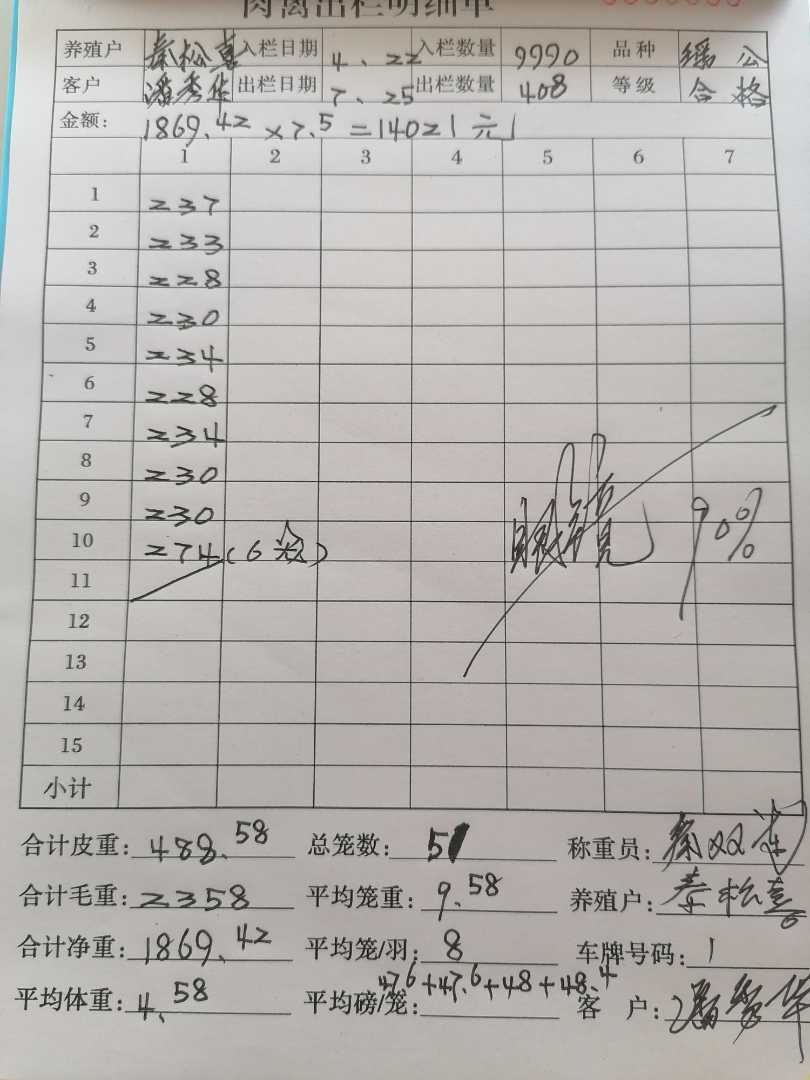 肉禽出栏明细单
养殖户 秦松喜 入栏日期 4、22 入栏数量 9990 品种 瑶公
客户 潘秀华 出栏日期 7、25 出栏数量 408 等级 合格
金额: 1869.42 × 7.5 = 14021元
1 2 3 4 5 6 7
1 237
2 233
3 228
4 230
5 234
6 228
7 234
8 230
9 230
10 274(6笼)
90%
11
12
13
14
15
小计
合计皮重: 488.58 总笼数: 51 称重员:
合计毛重: 2358 平均笼重: 9.58 养殖户: 秦松喜
合计净重: 1869.42 平均笼/羽: 8 车牌号码: 1
平均体重: 4.58 平均磅/笼: 47.6+47.6+48+48.4 客户: 潘秀华